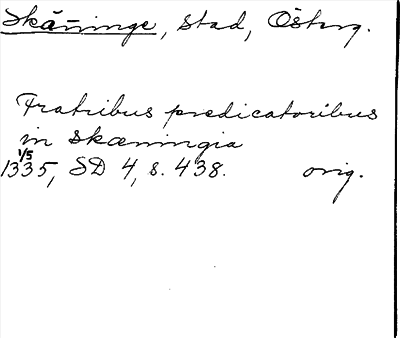 Skänninge, stad, Österg.
Fratribus predicatoribus
in Skæningia
1/5
1335, SD 4, s. 438. orig.